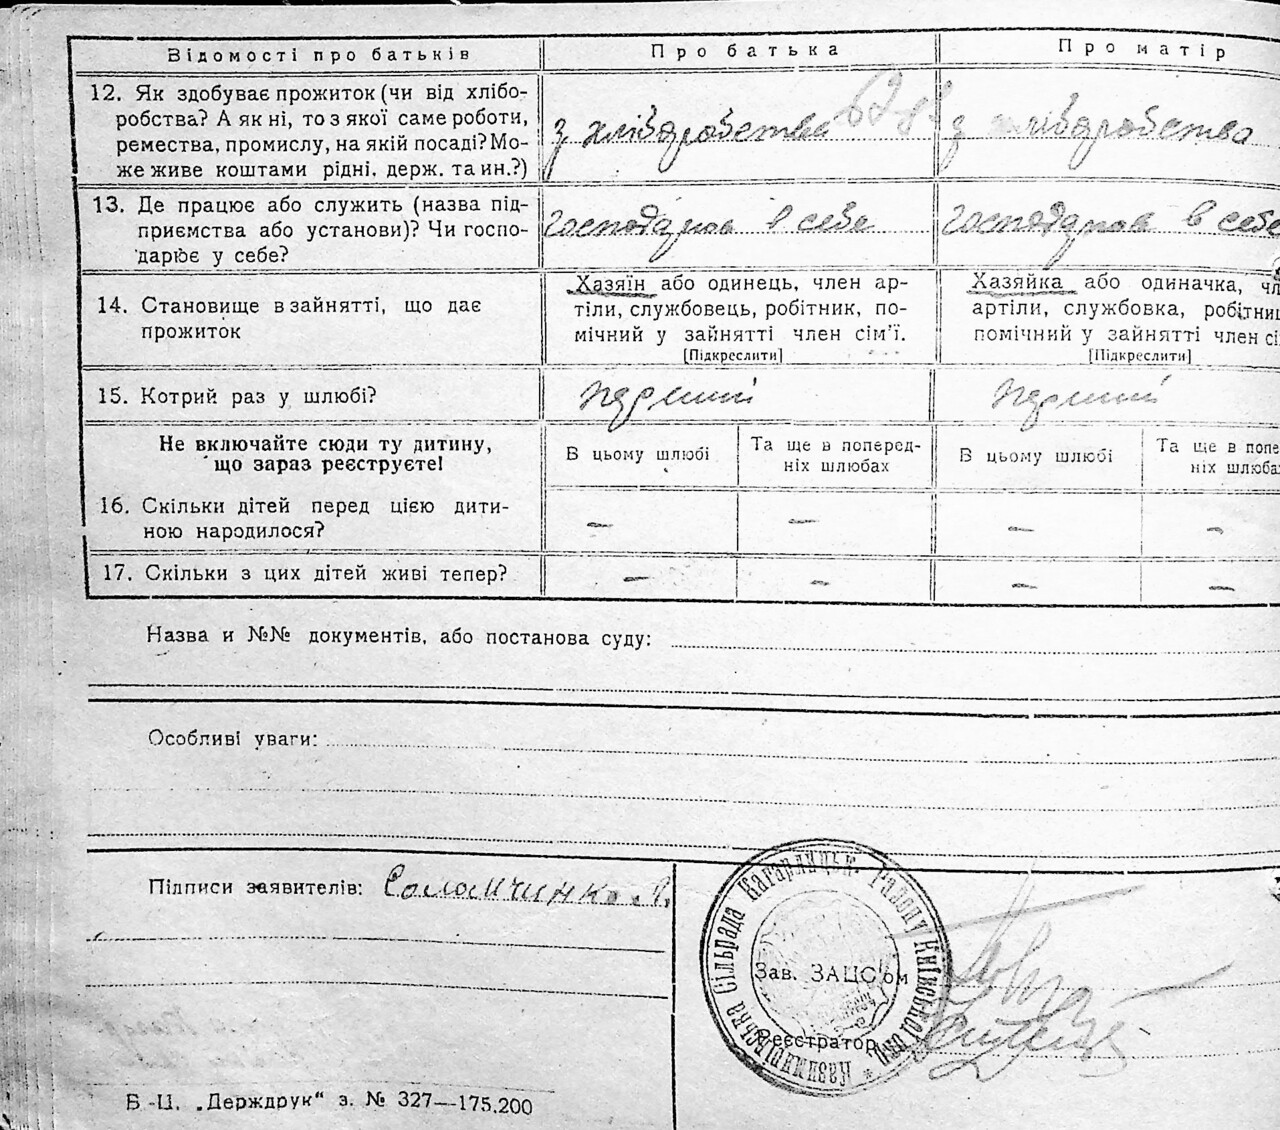 Відомості про батьків
Про батька
Про матір
12. Як здобуває прожиток (чи від хлібо-
робства? А як ні, то з якої саме роботи,
ремества, промислу, на якій посаді? Мо-
же живе коштами рідні. держ. та ин.?)
з хліборобства
з хліборобства
13. Де працює або служить (назва під-
приємства або установи)? Чи госпо-
дарює у себе?
господарює в себе
господарює в себе
14. Становище в зайнятті, що дає
прожиток
Хазяїн або одинець, член ар-
тіли, службовець, робітник, по-
мічний у зайнятті член сім'ї.
[Підкреслити]
Хазяйка або одиначка, чл
артіли, службовка, робітниц
помічний у зайнятті член сі
[Підкреслити]
15. Котрий раз у шлюбі?
перший
перший
Не включайте сюди ту дитину,
що зараз реєструєте!
В цьому шлюбі
Та ще в поперед-
ніх шлюбах
В цьому шлюбі
Та ще в попе
ніх шлюба
16. Скільки дітей перед цією дити-
ною народилося?
— — — —
17. Скільки з цих дітей живі тепер?
— — — —
Назва и №№ документів, або постанова суду:
Особливі уваги:
Підписи заявителів: Саламчинко
Сільрада Кагарлицьк. Району Київської
Зав. ЗАЦС'ом
Реєстратор
Б-Ц. „Держдрук" з. № 327—175.200